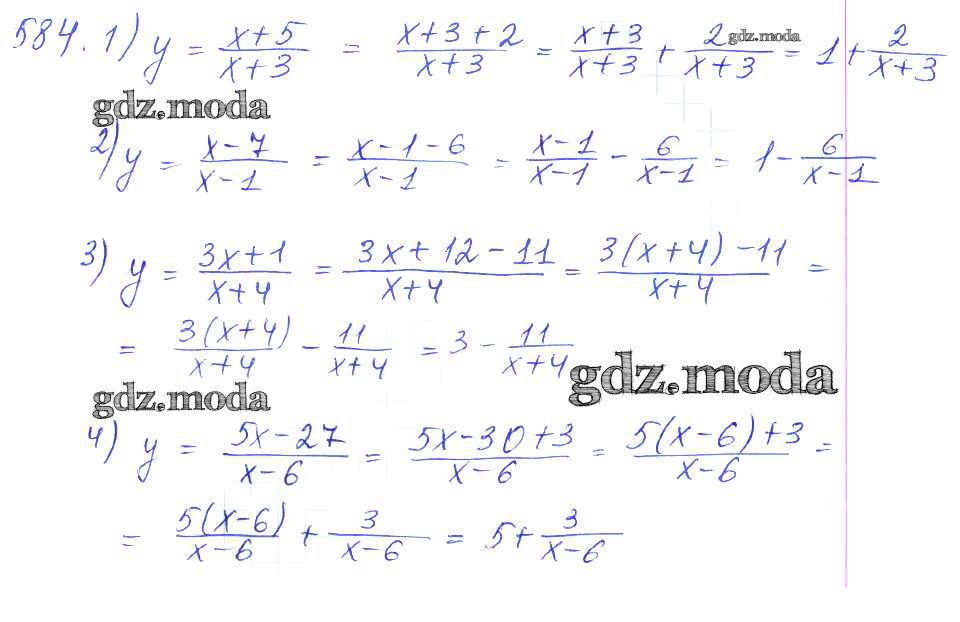 584. 1) y = (x+5)/(x+3) = (x+3+2)/(x+3) = (x+3)/(x+3) + 2/(x+3) = 1 + 2/(x+3)
gdz.moda
gdz.moda
2) y = (x-7)/(x-1) = (x-1-6)/(x-1) = (x-1)/(x-1) - 6/(x-1) = 1 - 6/(x-1)
3) y = (3x+1)/(x+4) = (3x+12-11)/(x+4) = (3(x+4)-11)/(x+4) =
= 3(x+4)/(x+4) - 11/(x+4) = 3 - 11/(x+4)
gdz.moda
gdz.moda
4) y = (5x-27)/(x-6) = (5x-30+3)/(x-6) = (5(x-6)+3)/(x-6) =
= 5(x-6)/(x-6) + 3/(x-6) = 5 + 3/(x-6)